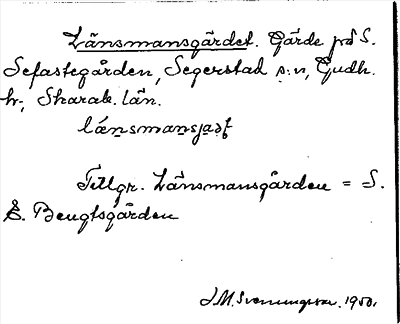 Länsmansgärdet. Gärde på S.
Sefastegården, Segerstad s:n, Gudh.
h-, Skarab. län.
Tillgr. Länsmansgården = S.
E. Bengtsgården
J.M. Svenningson. 1950.